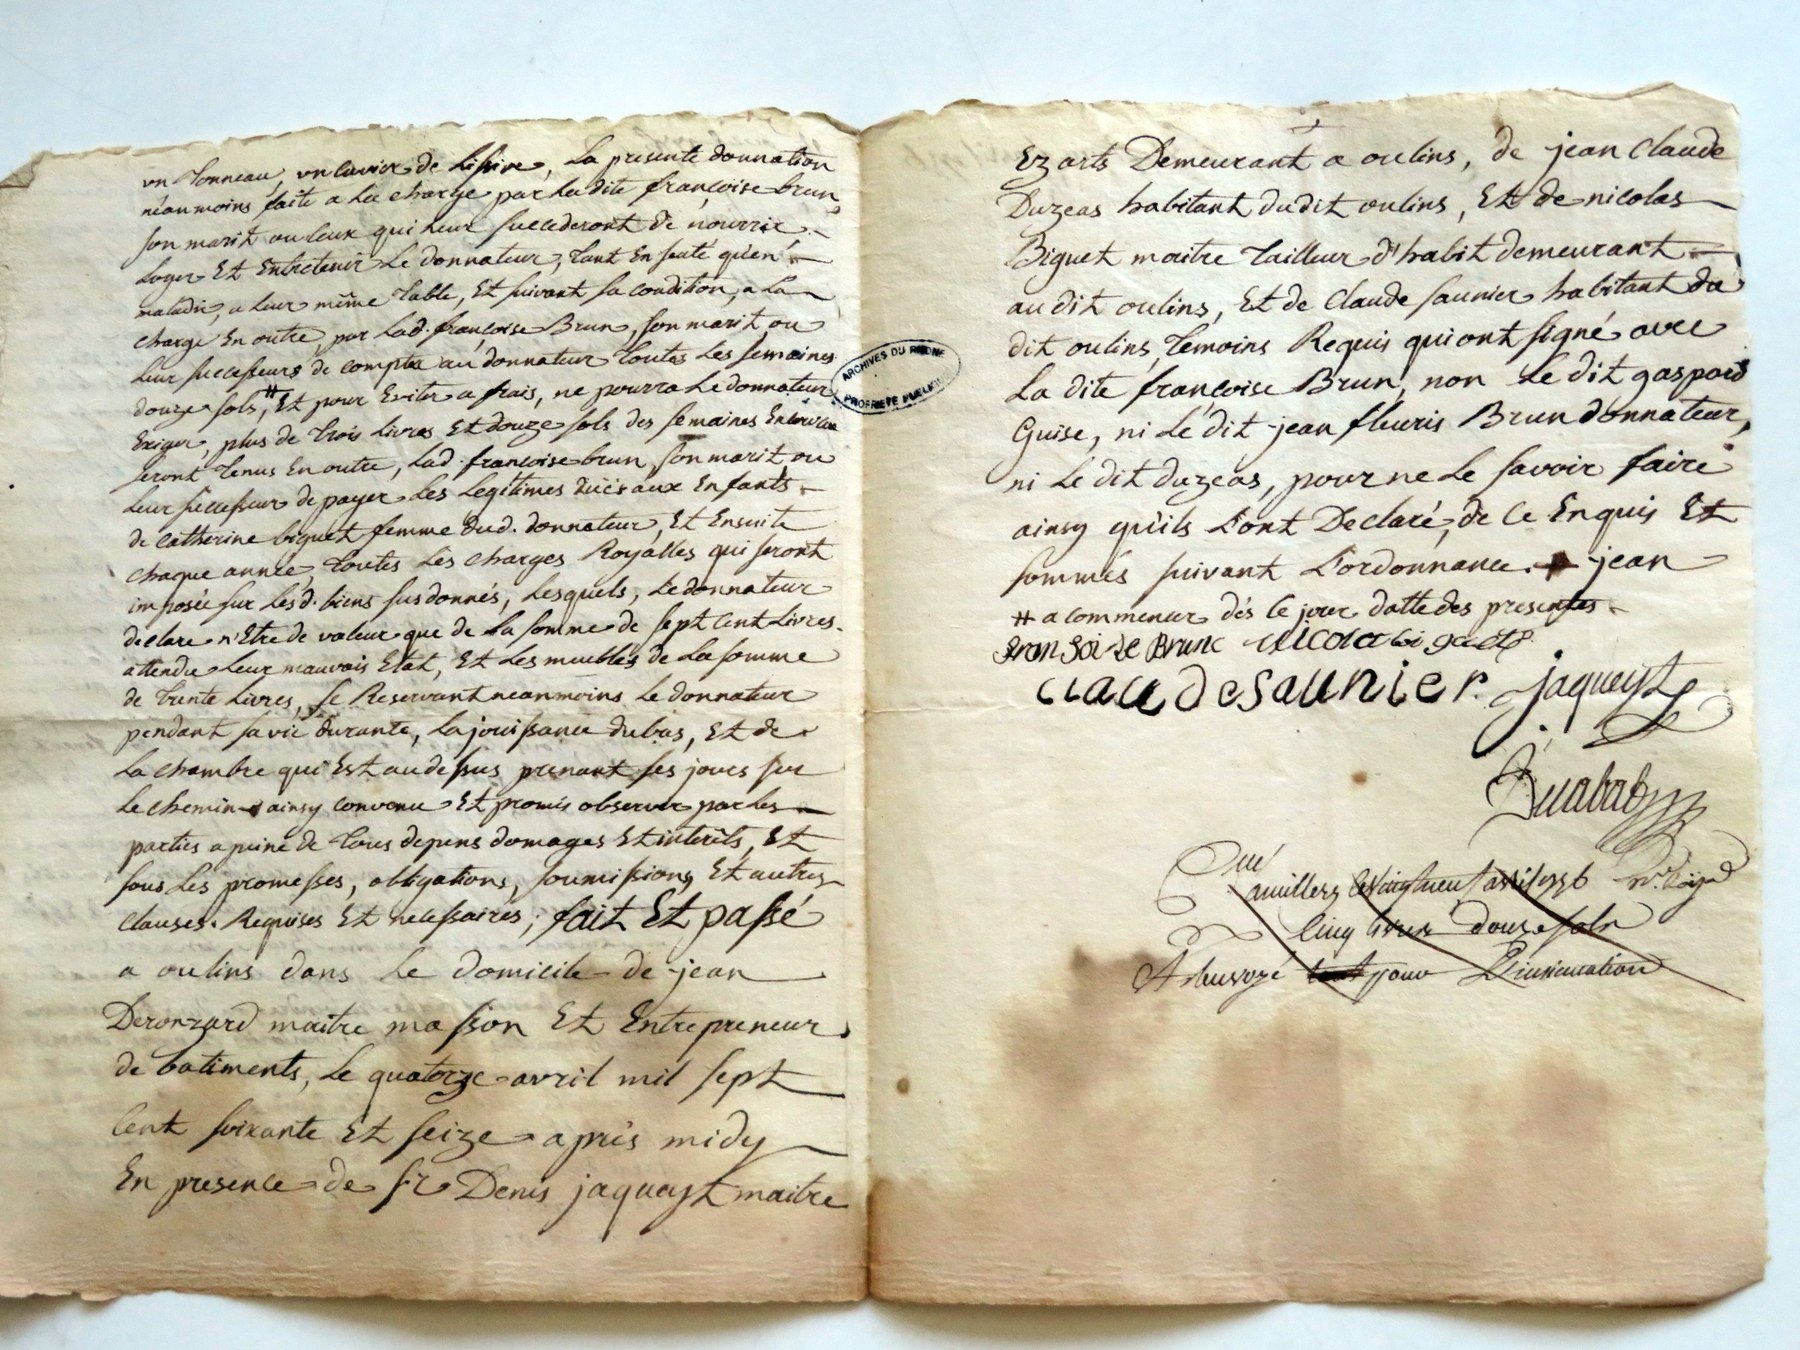 un Tonneau, un cuvier de Lissive, La presente donnation
néanmoins faite a La charge par La dite françoise brun
son marit ou ceux qui leur succederont de nourrir
Loger Et Entretenir Le donnateur, Tant En santé qu'en
maladie, a leur même Table, Et suivant sa condition, a La
charge En outre, par Lad. françoise Brun, son marit, ou
Leur successeurs de compter au donnateur Toutes Les semaines
douze sols, # Et pour Eviter a frais, ne pourra Le donnateur
Exiger, plus de Trois Livres Et douze sols des semaines
seront Tenus En outre, Lad. francoise brun, son marit, ou
Leur successeur de payer Les Legitimes aux Enfants
de Catherine biguet femme dud. donnateur, Et Ensuite
chaque année, Toutes Les charges Royalles qui seront
imposée sur Lesd. biens susdonnés, Lesquels, Le donnateur
declare n'Etre de valeur que de La somme de sept cent Livres
attendu Leur mauvais Etat, Et Les meubles de La somme
de Trente Livres, se Reservant neanmoins Le donnateur
pendant sa vie durante, La jouissance du bas, Et de
La chambre qui Est au dessus prenant ses jours sur
Le chemin ainsy convenu Et promis observer par Les
parties a peine de Tous depens domages Et interêts, Et
sous Les promesses, obligations, soumissions, Et autres
clauses. Requises Et necessaires; fait Et passé
a oulins dans Le domicile de jean
Deronzard maitre masson Et Entrepreneur
de batiments, Le quatorze avril mil sept
cent soixante Et seize après midy
En presence de sr Denis jaqueyt maitre
ARCHIVES DU RHÔNE
PROPRIÉTÉ PUBLIQUE
Ez arts Demeurant a oulins, de jean Claude
Duzeas habitant dudit oulins, Et de nicolas
Biguet maitre Tailleur d'habit demeurant
audit oulins, Et de Claude saunier habitant du
dit oulins Temoins Requis qui ont signé avec
La dite francoise Brun, non Le dit gaspard
Guise, ni Le dit jean fleuris Brun donnateur,
ni Le dit duzeas, pour ne Le savoir faire
ainsy qu'ils L'ont Declaré, de ce Enquis Et
sommés suivant L'ordonnance. jean
# a commencer dès ce jour datte des presentes
fransoize Brune nicola biguet
claudesaunier. jaqueyt

a millery Le vingtneuf avril 1776
cinq livres douze sols
pour L'insinuation